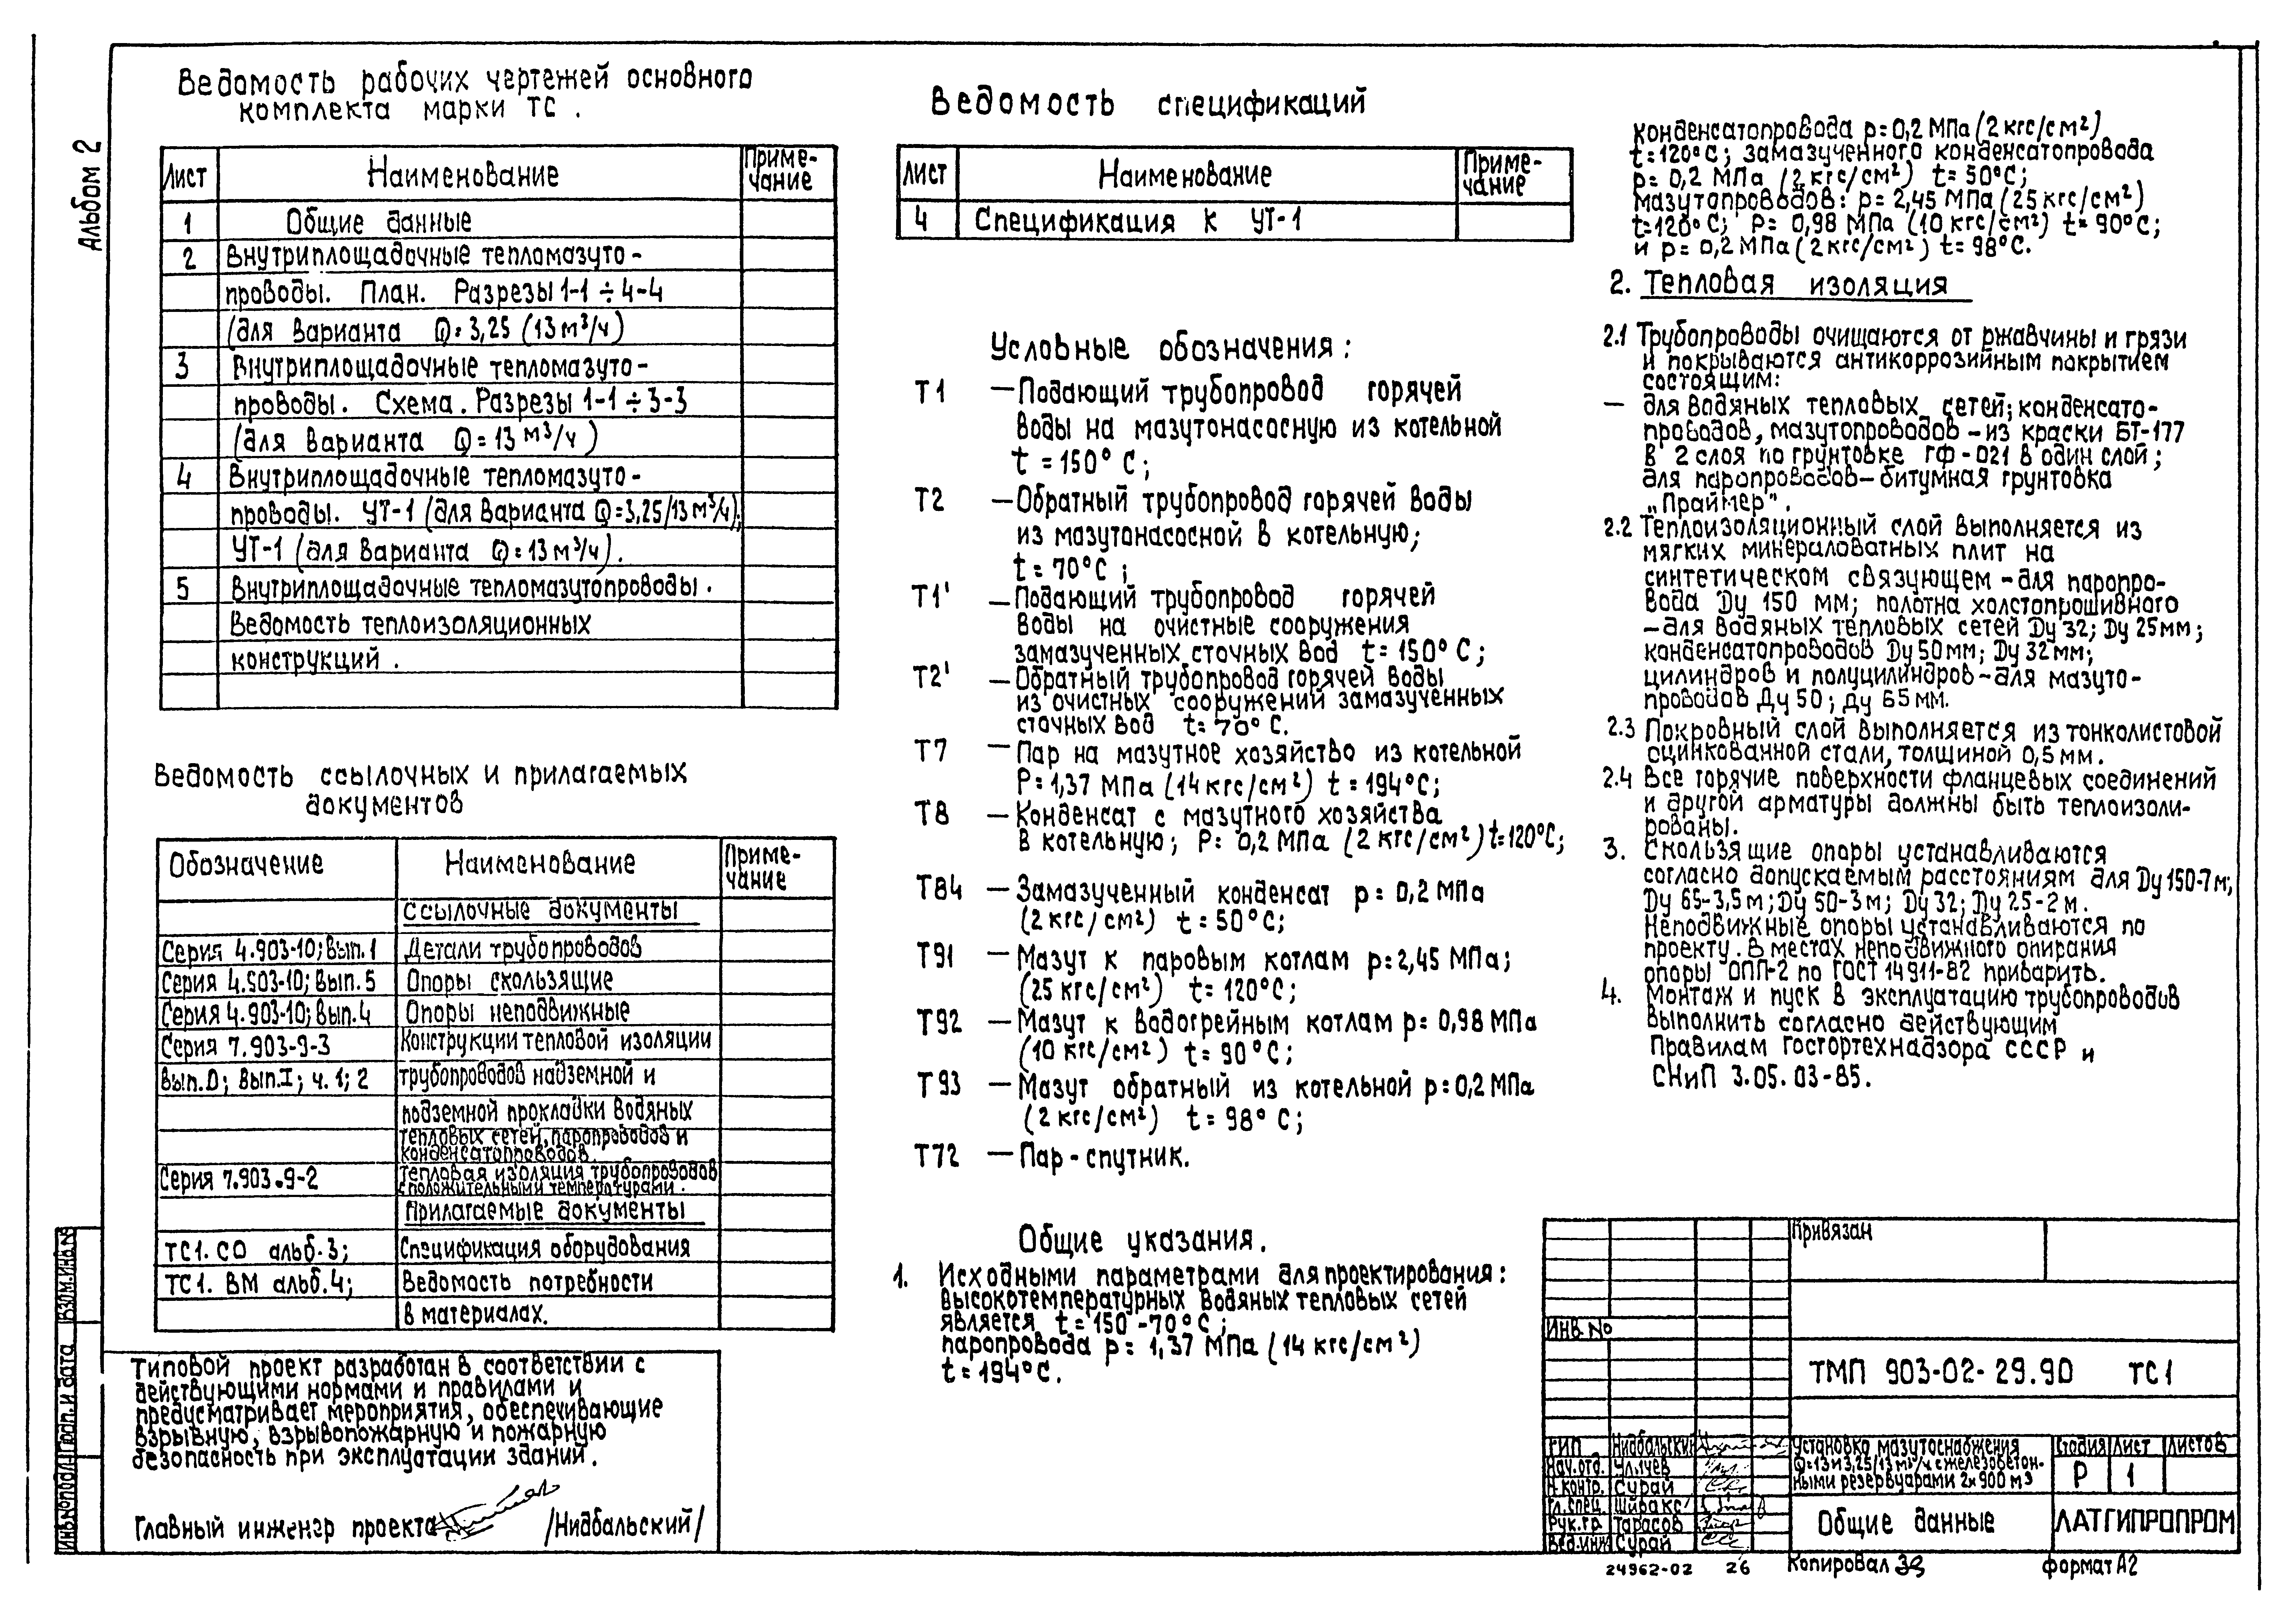 Альбом 2
Ведомость рабочих чертежей основного
комплекта марки ТС.
Лист Наименование Приме-
чание
1 Общие данные
2 Внутриплощадочные тепломазуто-
проводы. План. Разрезы 1-1 ÷ 4-4
(для варианта Q=3,25 (13 м³/ч)
3 Внутриплощадочные тепломазуто-
проводы. Схема. Разрезы 1-1 ÷ 3-3
(для варианта Q=13 м³/ч)
4 Внутриплощадочные тепломазуто-
проводы. УТ-1 (для варианта Q=3,25/13 м³/ч);
УТ-1 (для варианта Q=13 м³/ч).
5 Внутриплощадочные тепломазутопроводы.
Ведомость теплоизоляционных
конструкций.
Ведомость ссылочных и прилагаемых
документов
Обозначение Наименование Приме-
чание
Ссылочные документы
Серия 4.903-10; вып.1 Детали трубопроводов
Серия 4.903-10; вып.5 Опоры скользящие
Серия 4.903-10; вып.4 Опоры неподвижные
Серия 7.903-9-3 Конструкции тепловой изоляции
вып.0; вып.I; ч.1; 2 трубопроводов надземной и
подземной прокладки водяных
тепловых сетей, паропроводов и
конденсатопроводов.
Серия 7.903.9-2 Тепловая изоляция трубопроводов
с положительными температурами.
Прилагаемые документы
ТС1. СО альб.3; Спецификация оборудования
ТС1. ВМ альб.4; Ведомость потребности
в материалах.
Типовой проект разработан в соответствии с
действующими нормами и правилами и
предусматривает мероприятия, обеспечивающие
взрывную, взрывопожарную и пожарную
безопасность при эксплуатации зданий.
Главный инженер проекта /Нидбальский/
Ведомость спецификаций
Лист Наименование Приме-
чание
4 Спецификация к УТ-1
Условные обозначения:
Т1 — Подающий трубопровод горячей
воды на мазутонасосную из котельной
t = 150° С;
Т2 — Обратный трубопровод горячей воды
из мазутонасосной в котельную;
t = 70°С;
Т1' — Подающий трубопровод горячей
воды на очистные сооружения
замазученных сточных вод t = 150° С;
Т2' — Обратный трубопровод горячей воды
из очистных сооружений замазученных
сточных вод t = 70° С.
Т7 — Пар на мазутное хозяйство из котельной
Р=1,37 МПа (14 кгс/см²) t = 194°С;
Т8 — Конденсат с мазутного хозяйства
в котельную; Р= 0,2 МПа (2 кгс/см²) t=120°С;
Т84 — Замазученный конденсат р= 0,2 МПа
(2 кгс/см²) t = 50°С;
Т91 — Мазут к паровым котлам р=2,45 МПа;
(25 кгс/см²) t= 120°С;
Т92 — Мазут к водогрейным котлам р= 0,98 МПа
(10 кгс/см²) t= 90°С;
Т93 — Мазут обратный из котельной р=0,2 МПа
(2 кгс/см²) t= 98° С;
Т72 — Пар-спутник.
Общие указания.
1. Исходными параметрами для проектирования:
высокотемпературных водяных тепловых сетей
является t = 150 -70°С;
паропровода р= 1,37 МПа (14 кгс/см²)
t = 194°С.
конденсатопровода р= 0,2 МПа (2 кгс/см²)
t =120°С; замазученного конденсатопровода
р= 0,2 МПа (2 кгс/см²) t = 50°С;
мазутопроводов: р= 2,45 МПа (25 кгс/см²)
t=120°С; Р= 0,98 МПа (10 кгс/см²) t= 90°С;
и р= 0,2 МПа (2 кгс/см²) t= 98°С.
2. Тепловая изоляция
2.1 Трубопроводы очищаются от ржавчины и грязи
и покрываются антикоррозийным покрытием
состоящим:
— для водяных тепловых сетей; конденсато-
проводов, мазутопроводов – из краски БТ-177
в 2 слоя по грунтовке ГФ-021 в один слой;
для паропроводов – битумная грунтовка
„Праймер".
2.2 Теплоизоляционный слой выполняется из
мягких минераловатных плит на
синтетическом связующем – для паропро-
вода Ду 150 мм; полотна холстопрошивного
– для водяных тепловых сетей Ду 32; Ду 25 мм;
конденсатопроводов Ду 50 мм; Ду 32 мм;
цилиндров и полуцилиндров – для мазуто-
проводов Ду 50; Ду 65 мм.
2.3 Покровный слой выполняется из тонколистовой
оцинкованной стали, толщиной 0,5 мм.
2.4 Все горячие поверхности фланцевых соединений
и другой арматуры должны быть теплоизоли-
рованы.
3. Скользящие опоры устанавливаются
согласно допускаемым расстояниям для Ду 150-7 м;
Ду 65-3,5 м; Ду 50-3 м; Ду 32; Ду 25-2 м.
Неподвижные опоры устанавливаются по
проекту. В местах неподвижного опирания
опоры ОПП-2 по ГОСТ 14911-82 приварить.
4. Монтаж и пуск в эксплуатацию трубопроводов
выполнить согласно действующим
Правилам Госгортехнадзора СССР и
СНиП 3.05.03-85.
Привязан
Инв. №
ТМП 903-02-29.90 ТС1
ГИП Нидбальский
Нач.отд. Улычев
Н.контр. Сурай
Гл.спец.
Рук.гр. Тарасов
Вед.инж. Сурай
Установка мазутоснабжения
Q=13 и 3,25/13 м³/ч с железобетон-
ными резервуарами 2х900 м³
Стадия Лист Листов
Р 1
Общие данные
ЛАТГИПРОПРОМ
24962-02 26 Копировал формат А2
Инв.№ подл. Подп. и дата Взам.инв.№